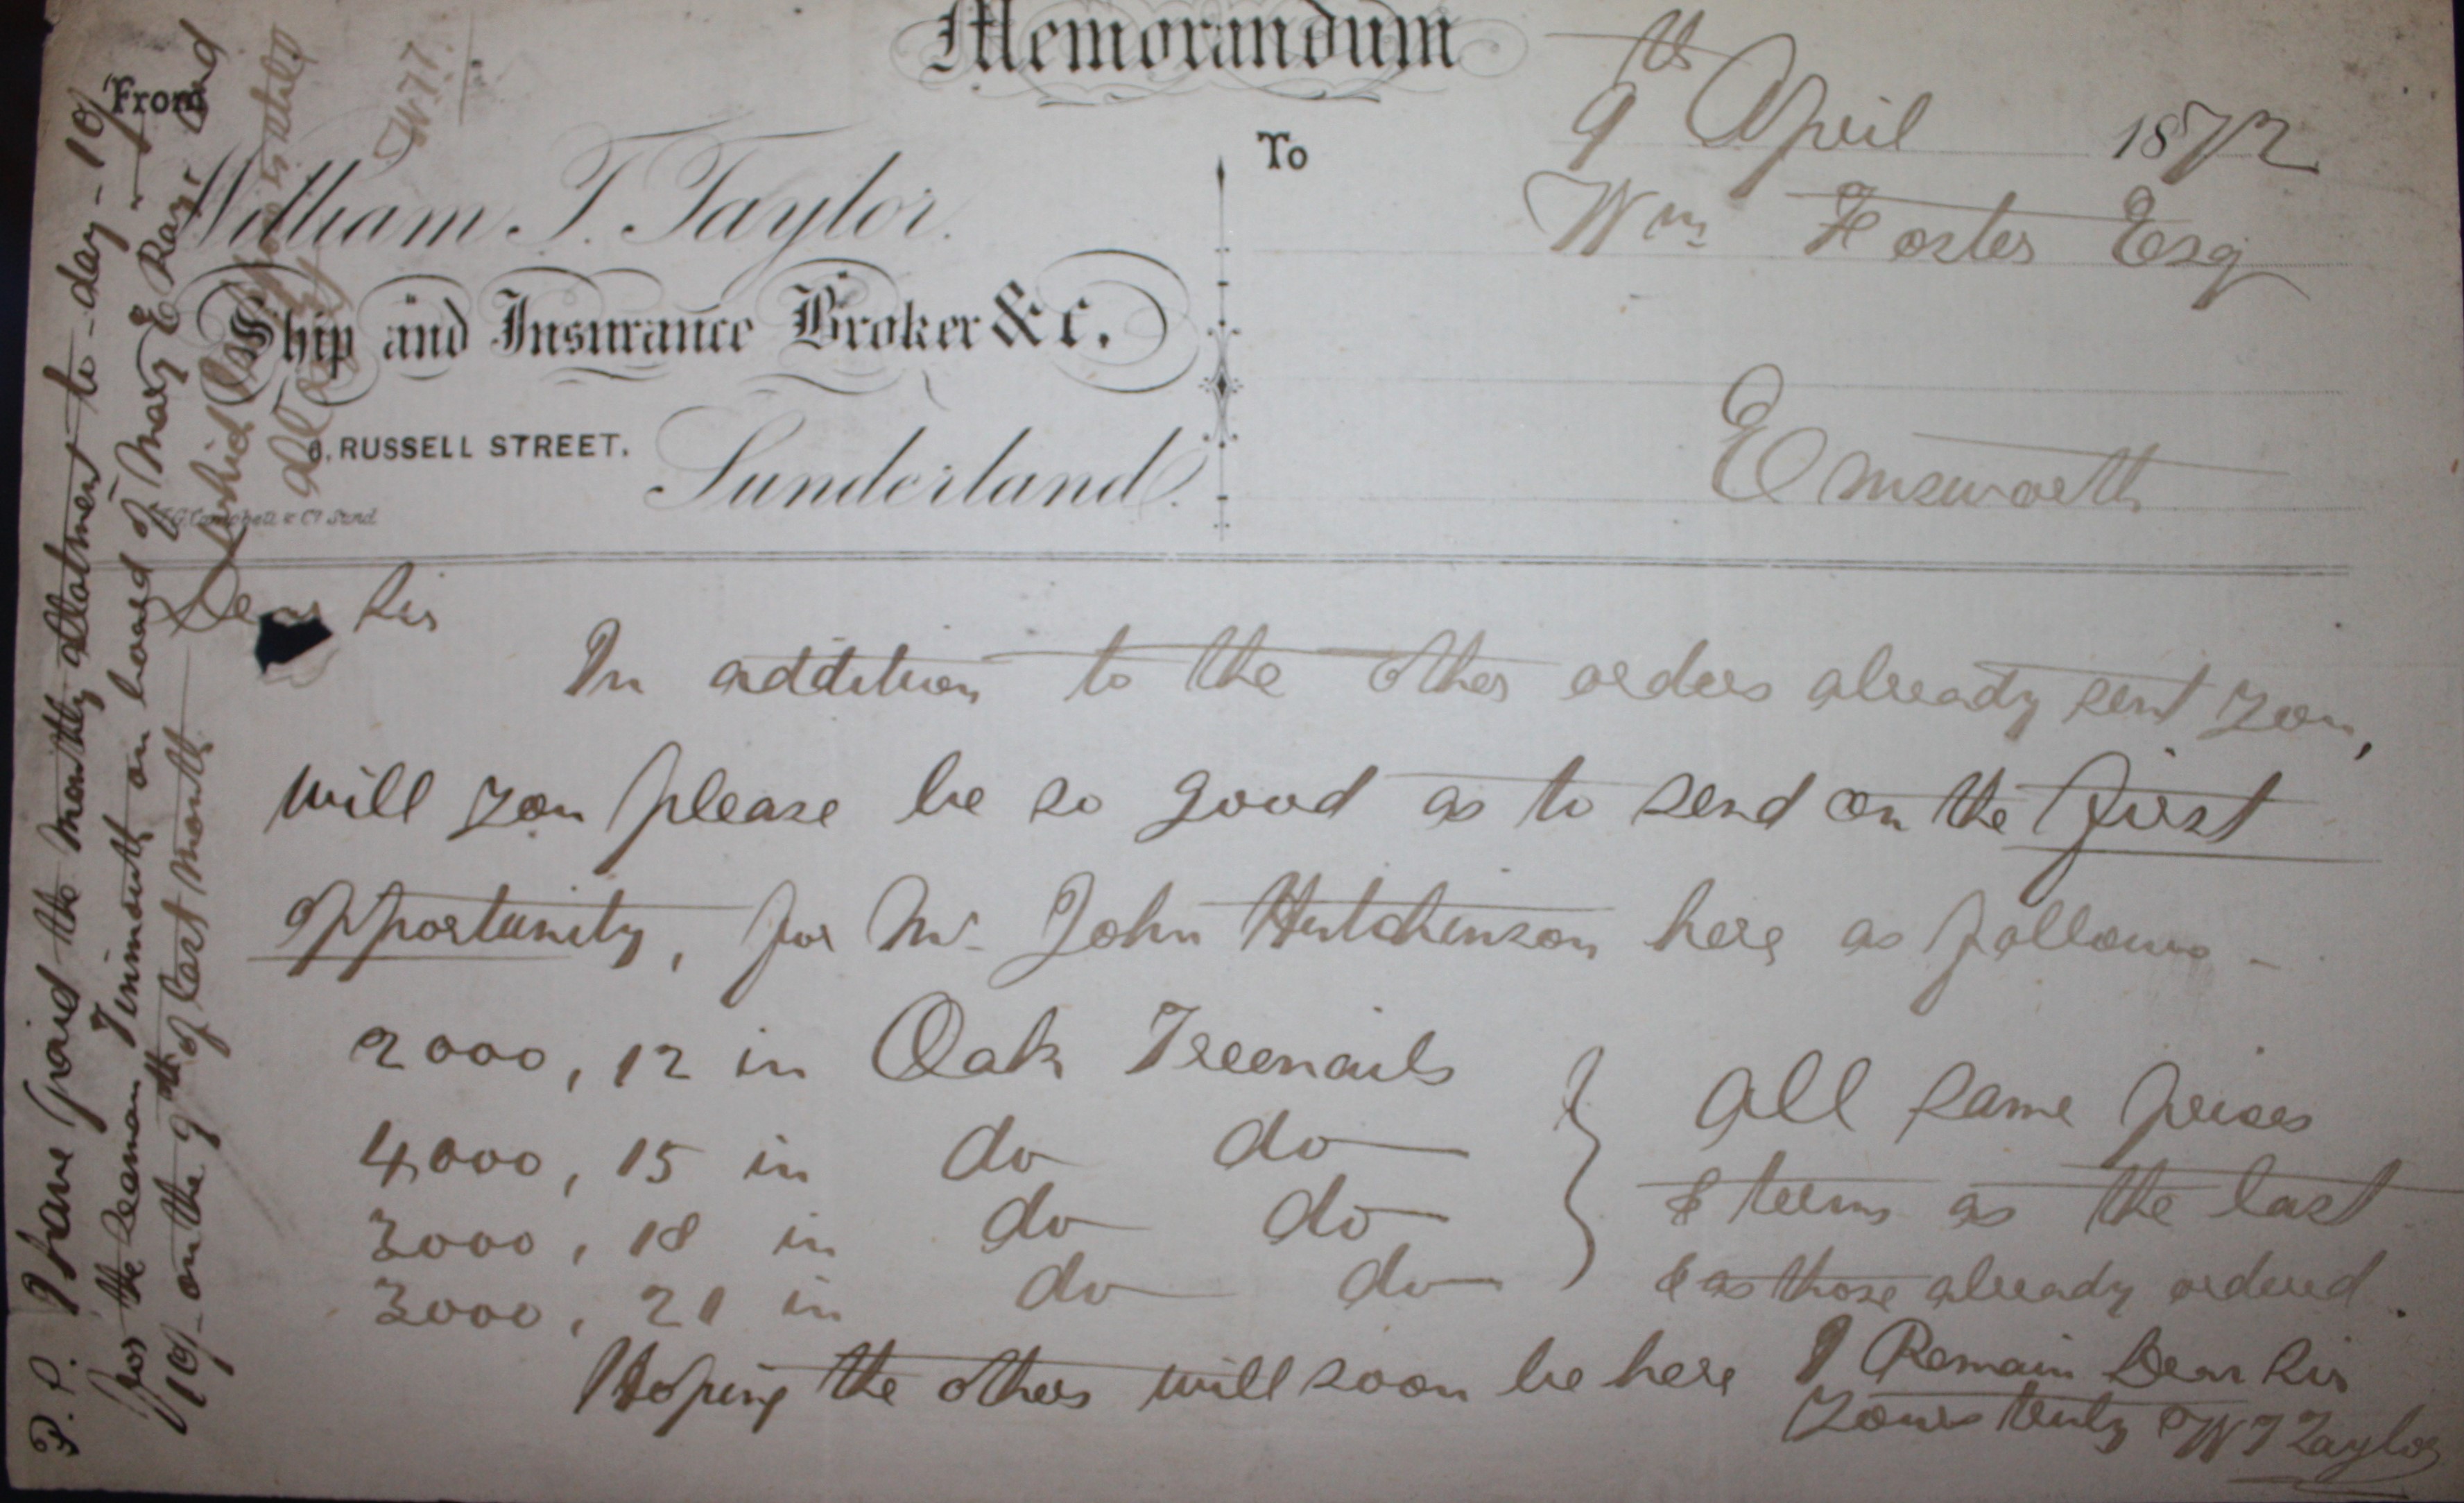 Memorandum
9th April 1872
From
To
William T. Taylor.
Wm Foster Esq
Ship and Insurance Broker &c.
RUSSELL STREET.
Sunderland.
Emsworth
Campbell & Co Sund
Dear Sir
In addition to the other orders already sent you,
will you please be so good as to send on the first
opportunity, for Mr John Hutchinson here as follows -
2000, 12 in Oak Treenails
4000, 15 in do do
3000, 18 in do do
3000, 21 in do do
} All same prices
& terms as the last
& as those already ordered.
Hoping the others will soon be here I Remain Dear Sir
Yours truly W T Taylor
P.S. I have paid the monthly allotment to-day - 10/-
for the seaman on board of Mary E Ray, and
10/- on the 9th of last month
W.T.T.